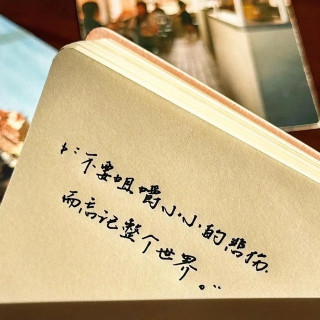 “不要咀嚼小小的悲伤
而忘记整个世界。”